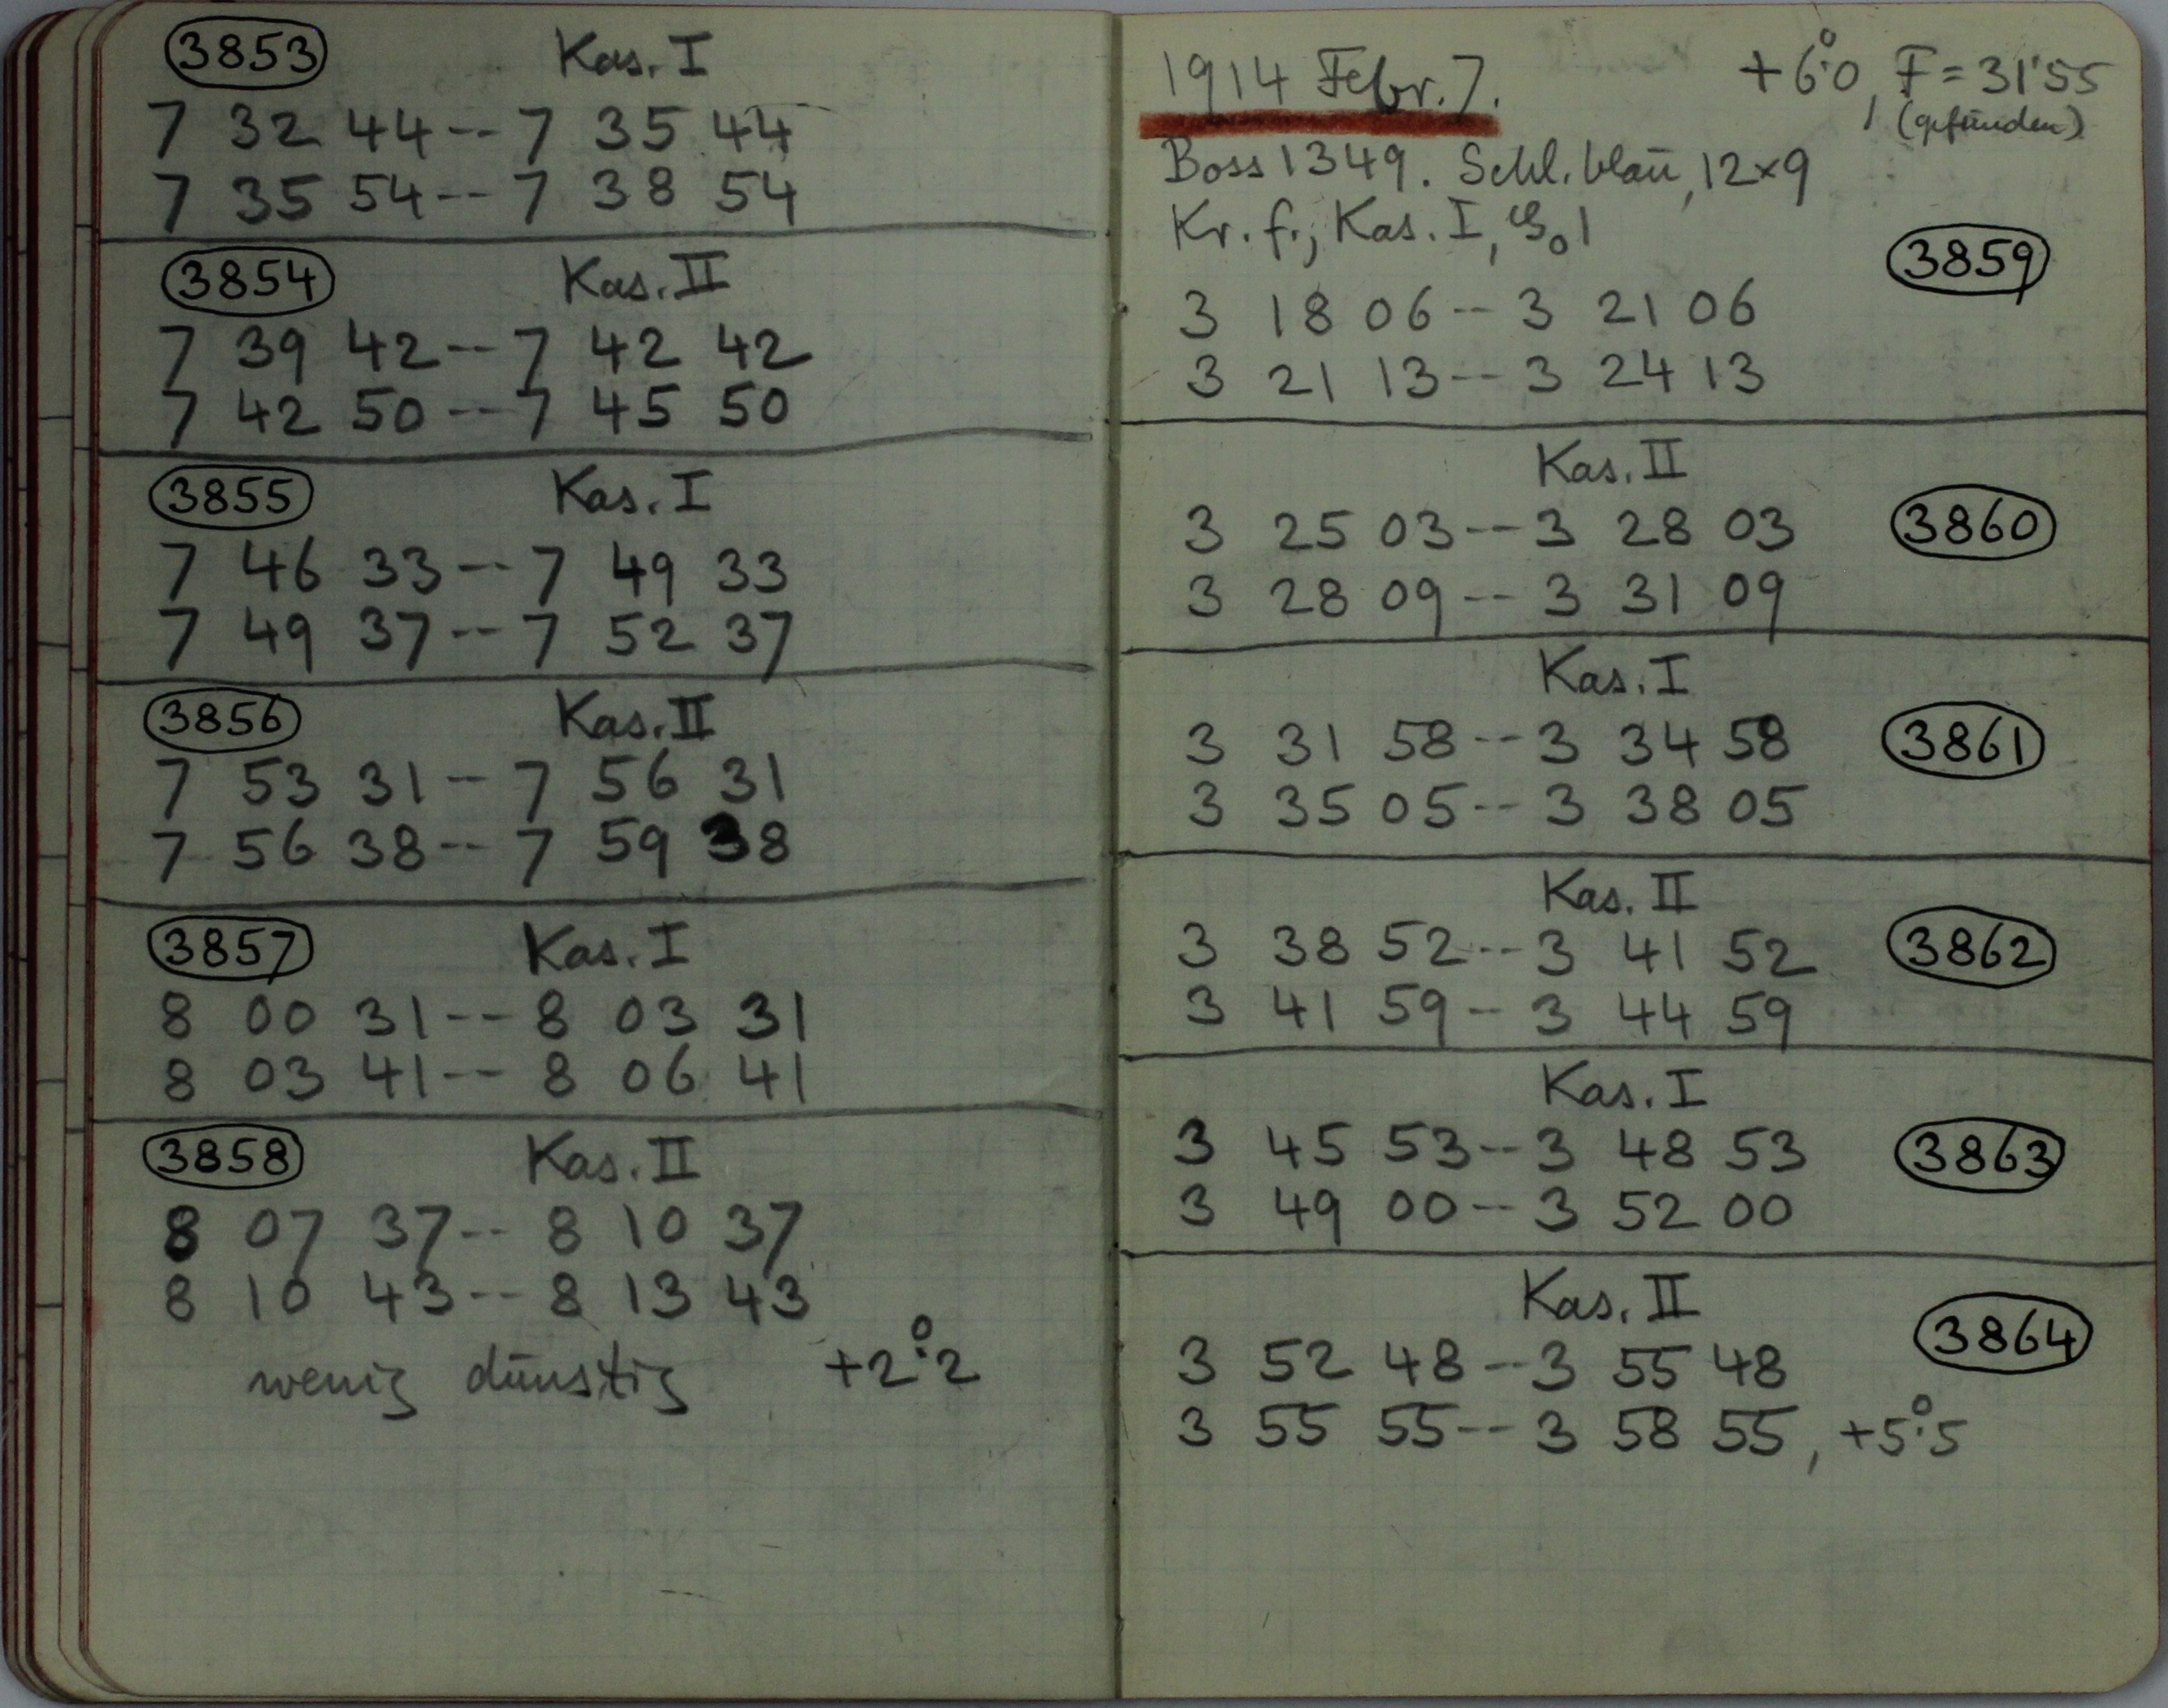 3853 Kas. I
7 32 44 -- 7 35 44
7 35 54 -- 7 38 54
3854 Kas. II
7 39 42 -- 7 42 42
7 42 50 -- 7 45 50
3855 Kas. I
7 46 33 -- 7 49 33
7 49 37 -- 7 52 37
3856 Kas. II
7 53 31 - 7 56 31
7 56 38 -- 7 59 38
3857 Kas. I
8 00 31 -- 8 03 31
8 03 41 -- 8 06 41
3858 Kas. II
8 07 37 -- 8 10 37
8 10 43 -- 8 13 43
wenig dünstig +2°.2
1914 Febr. 7. +6°.0, F = 31'55
(gefunden)
Boss 1349. Schl. blau, 12×9
Kr. f., Kas. I, 1
3859
3 18 06 -- 3 21 06
3 21 13 -- 3 24 13
Kas. II
3 25 03 -- 3 28 03 3860
3 28 09 -- 3 31 09
Kas. I
3 31 58 -- 3 34 58 3861
3 35 05 -- 3 38 05
Kas. II
3 38 52 -- 3 41 52 3862
3 41 59 -- 3 44 59
Kas. I
3 45 53 -- 3 48 53 3863
3 49 00 -- 3 52 00
Kas. II
3864
3 52 48 -- 3 55 48
3 55 55 -- 3 58 55, +5°.5